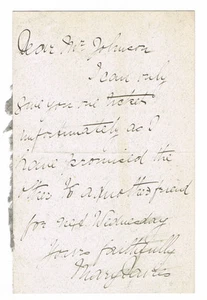 Dear Mr Johnson
I can only
give you one ticket
unfortunately as I
have promised the
other to another friend
for next Wednesday
Yours faithfully
Mary Davies